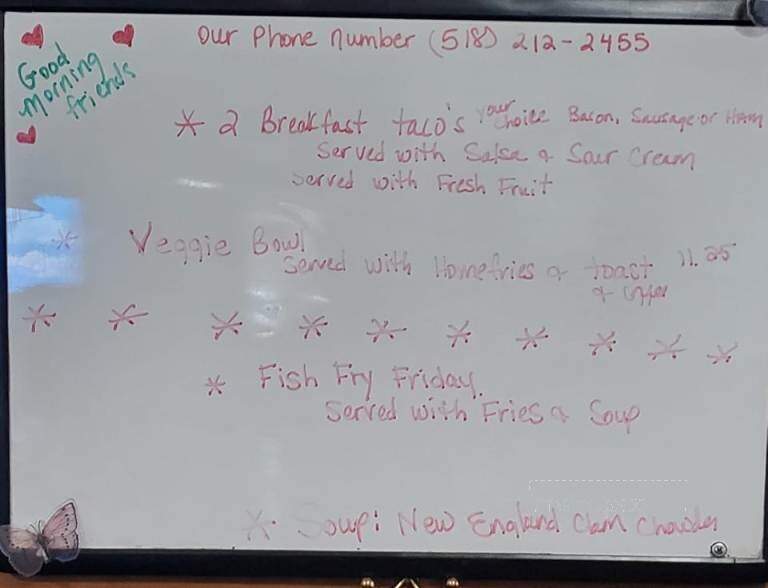 Our Phone number (518) 212-2455
Good
Morning
friends
* 2 Breakfast taco's your choice Bacon, Sausage or HAM
Served with Salsa & Sour Cream
Served with Fresh Fruit
* Veggie Bowl
Served with Homefries & toast 11.25
&
* * * * * * * * * *
* Fish Fry Friday.
Served with Fries & Soup
* Soup: New England Clam Chowder